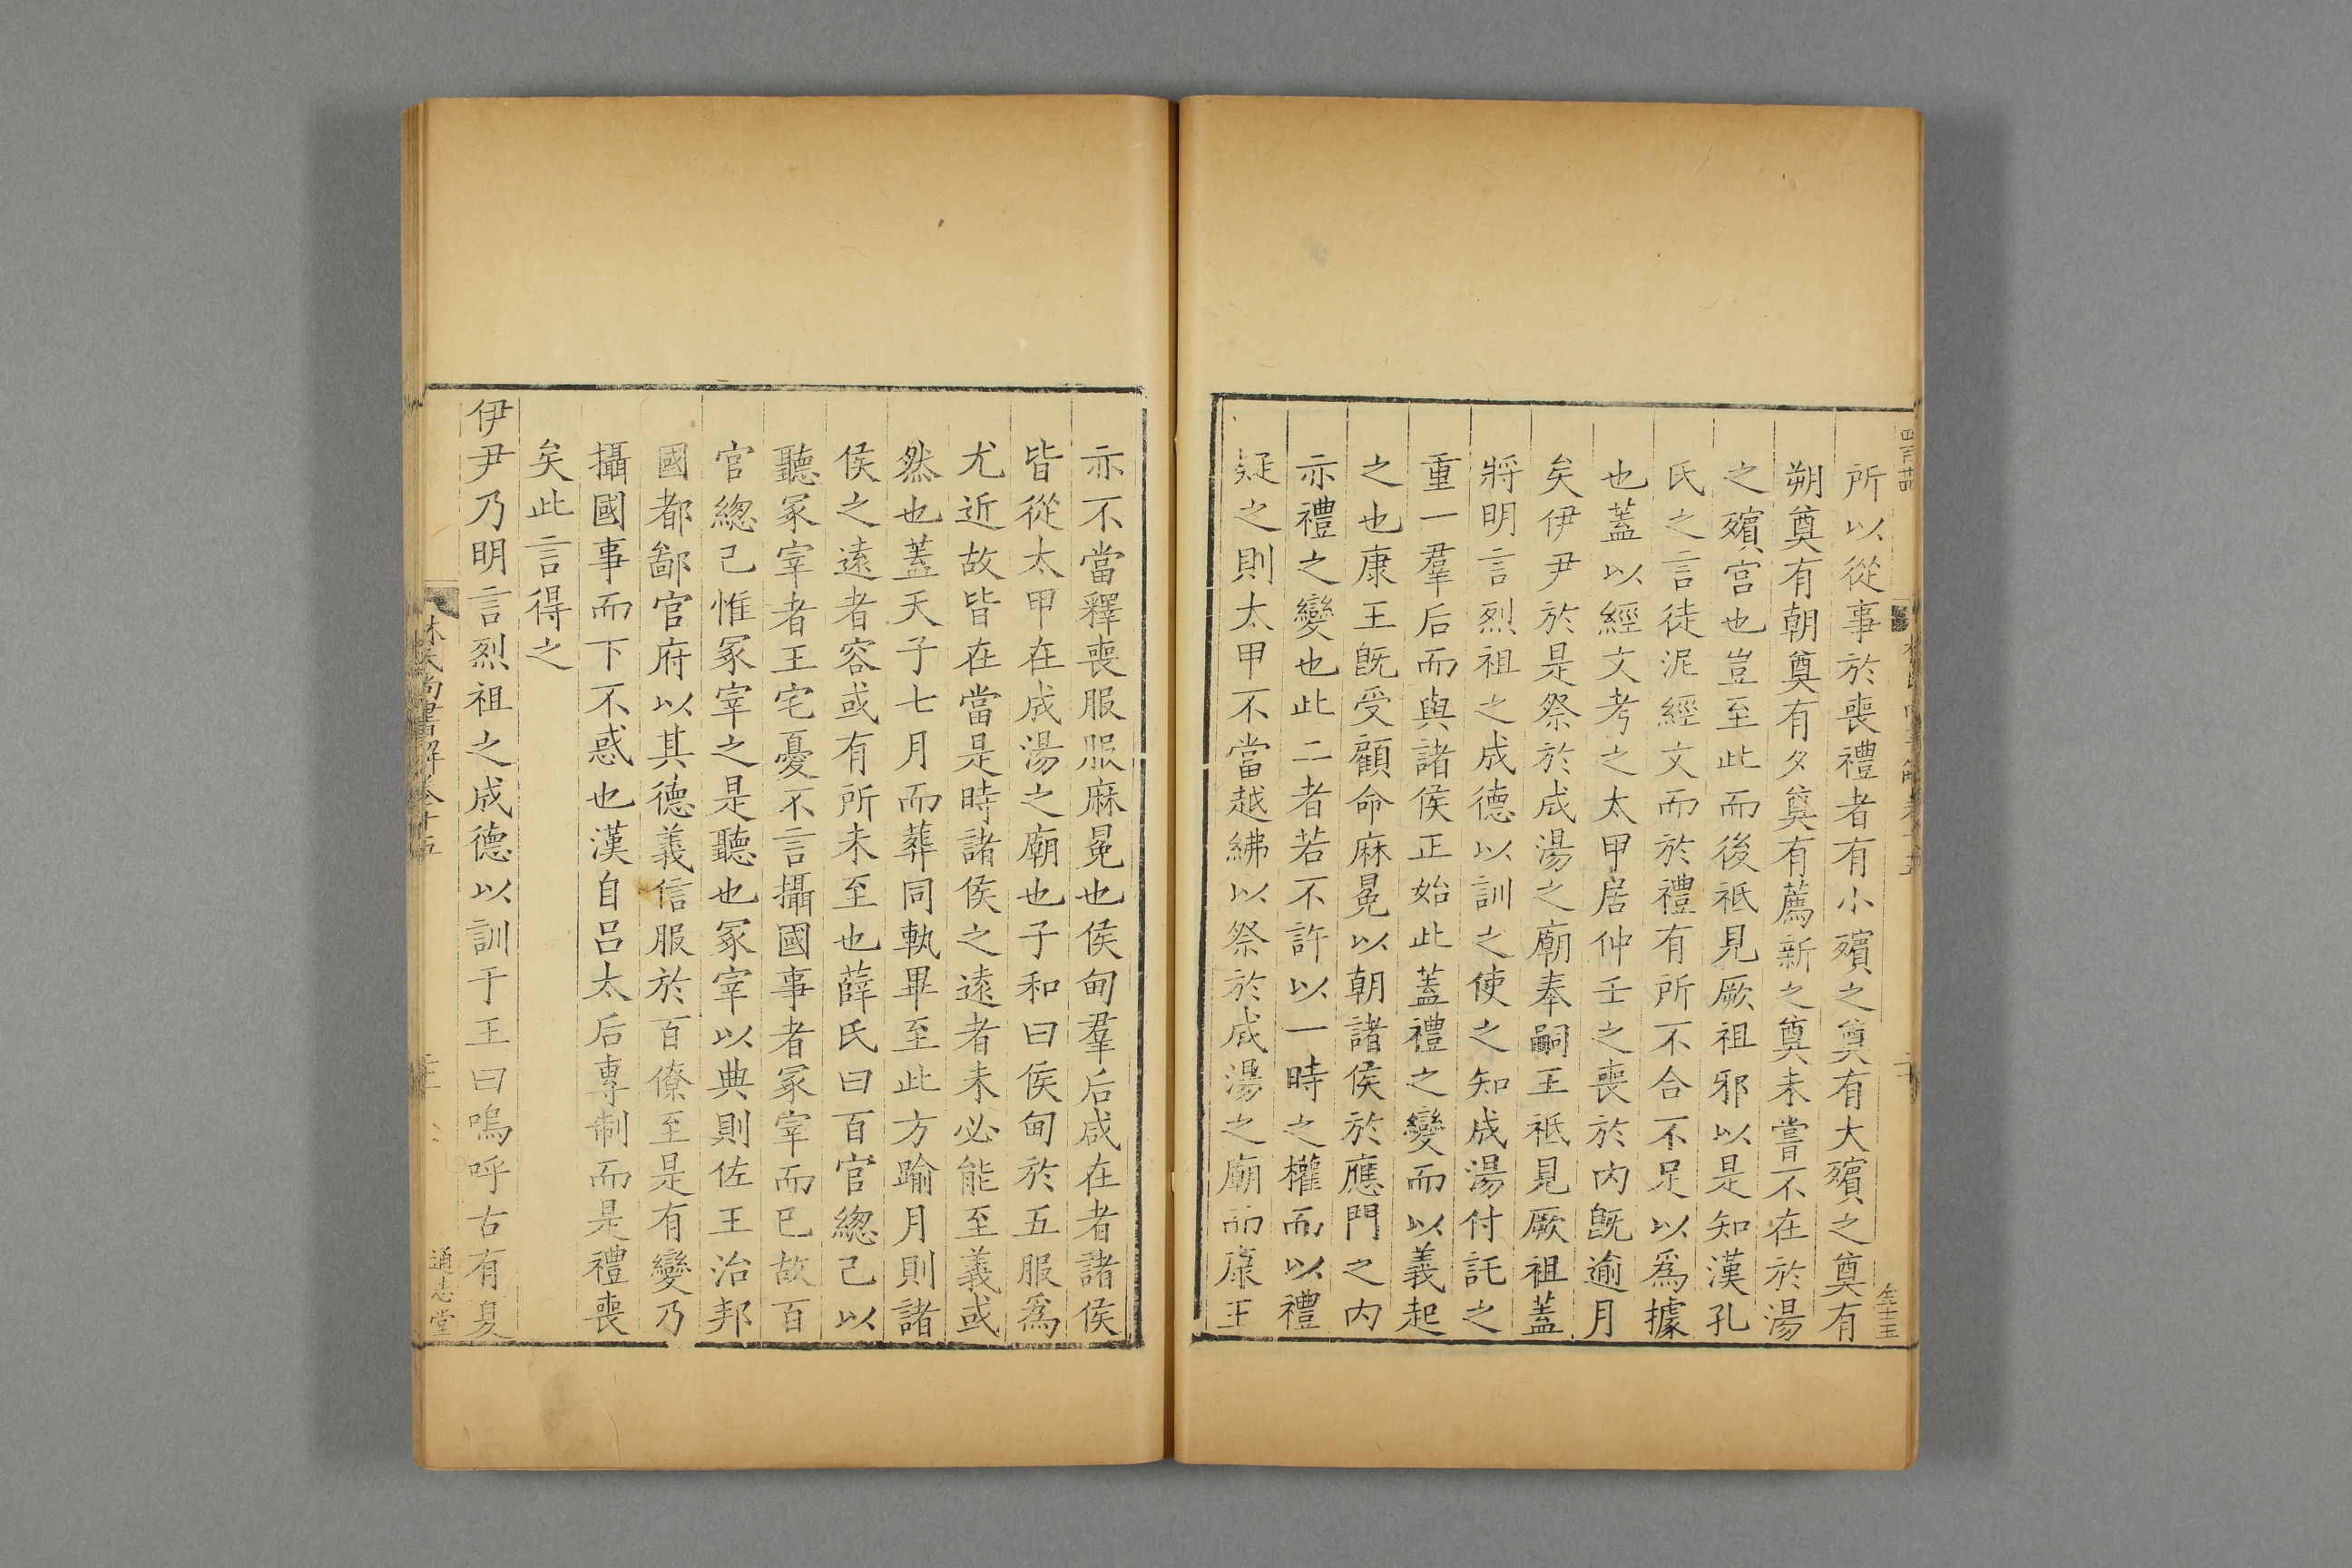 所以從事於喪禮者有小殯之奠有大殯之奠有
朔奠有朝奠奠有夕奠有薦新之奠未嘗不在於湯
之殯宮也豈至此而後祗見厥祖邪以是知漢孔
氏之言徒泥經文而於禮有所不合不足以爲據
也蓋以經文考之太甲居仲壬之喪於内既逾月
矣伊尹於是祭於成湯之廟奉嗣王祗見厥祖蓋
將明言烈祖之成德以訓之使之知成湯付託之
重一羣后而與諸侯正始此蓋禮之變而以義起
之也康王既受顧命麻冕以朝諸侯於應門之内
亦禮之變也此二者若不許以一時之權而以禮
疑之則太甲不當越紼以祭於成湯之廟而康王
亦不當釋喪服服麻冕也侯甸羣后咸在者諸侯
皆從太甲在成湯之廟也子和曰侯甸於五服爲
尤近故皆在當是時諸侯之遠者未必能至義或
然也蓋天子七月而葬同軌畢至此方踰月則諸
侯之遠者容或有所未至也薛氏曰百官總己以
聽冢宰者王宅憂不言攝國事者冢宰而已故百
官總己惟冢宰之是聽也冢宰以典則佐王治邦
國都鄙官府以其德義信服於百僚至是有變乃
攝國事而下不惑也漢自呂太后專制而是禮喪
矣此言得之
伊尹乃明言烈祖之成德以訓于王曰嗚呼古有夏
林氏尚書解卷十五
通志堂